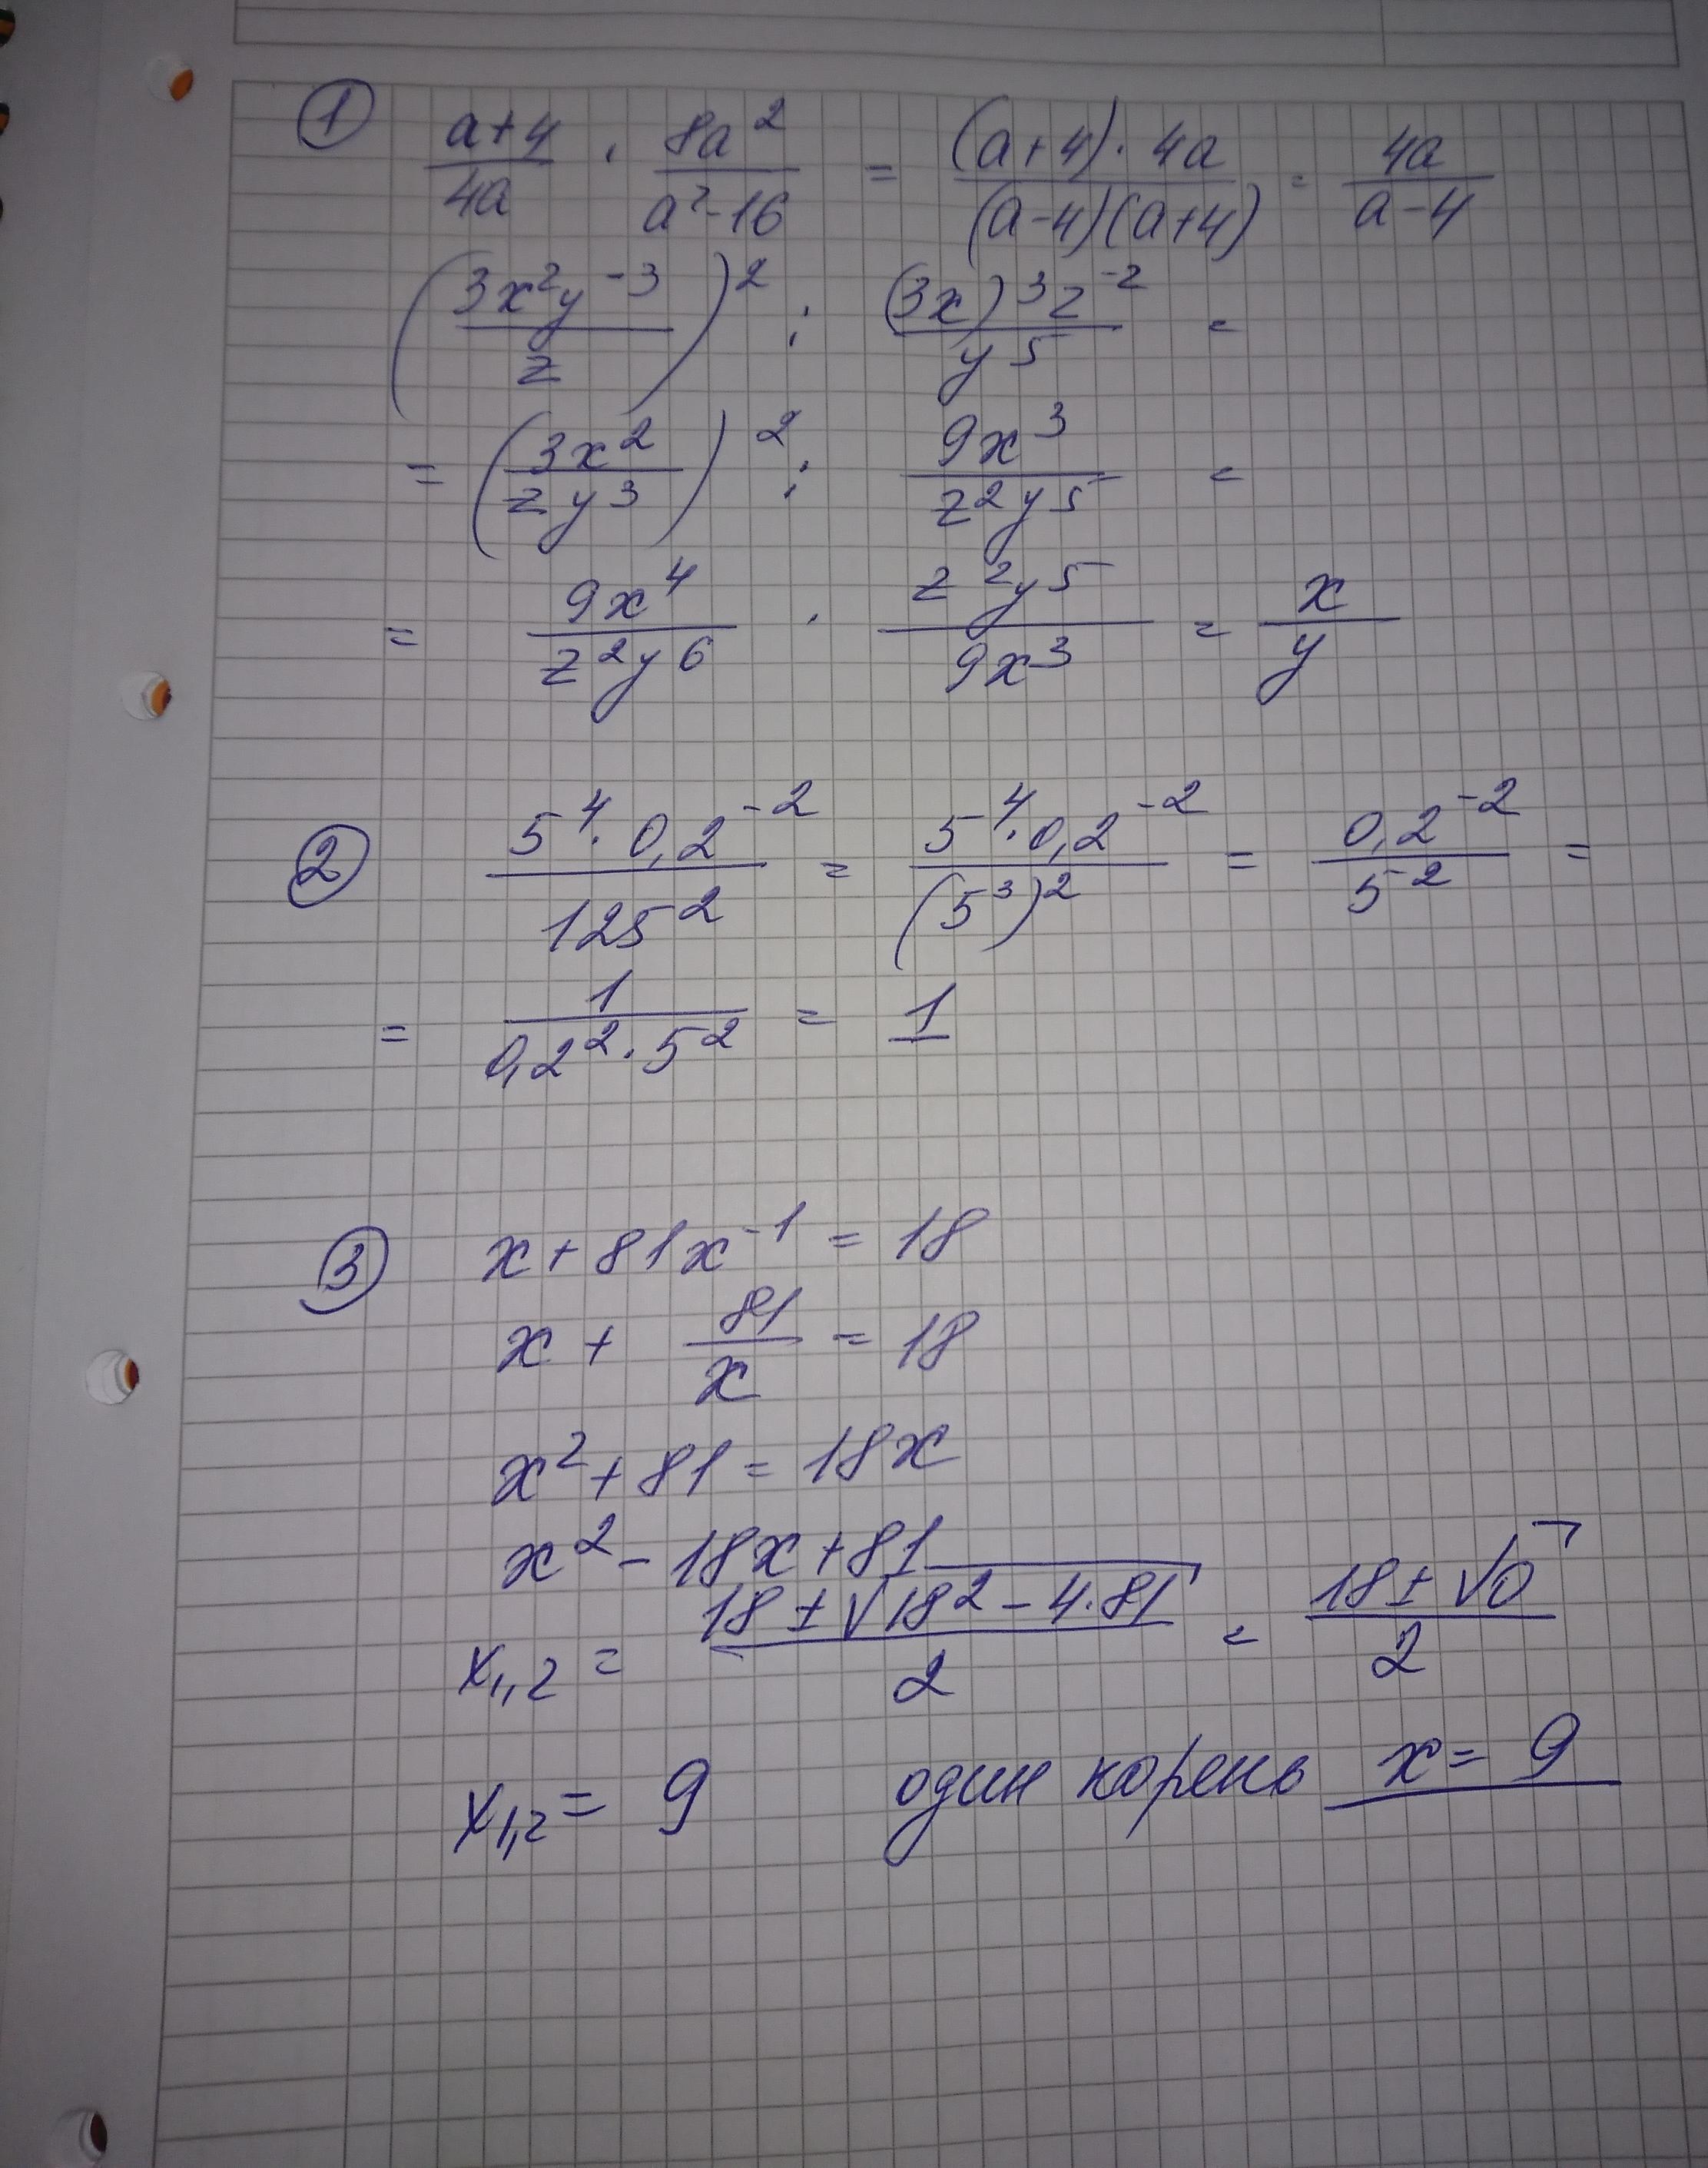 ① (a+4)/(4a) · (8a²)/(a²-16) = ((a+4)·4a)/((a-4)(a+4)) = (4a)/(a-4)
((3x²y⁻³)/z)² : ((3x)³z⁻²)/(y⁵) =
= ((3x²)/(zy³))² : (9x³)/(z²y⁵) =
= (9x⁴)/(z²y⁶) · (z²y⁵)/(9x³) = x/y
② (5⁴·0,2⁻²)/(125²) = (5⁴·0,2⁻²)/((5³)²) = (0,2⁻²)/(5⁻²) =
= 1/(0,2²·5²) = 1
③ x+81x⁻¹ = 18
x + 81/x = 18
x²+81 = 18x
x² - 18x + 81
x₁,₂ = (18 ± √(18² - 4·81))/2 = (18 ± √0)/2
x₁,₂ = 9 один корень x = 9